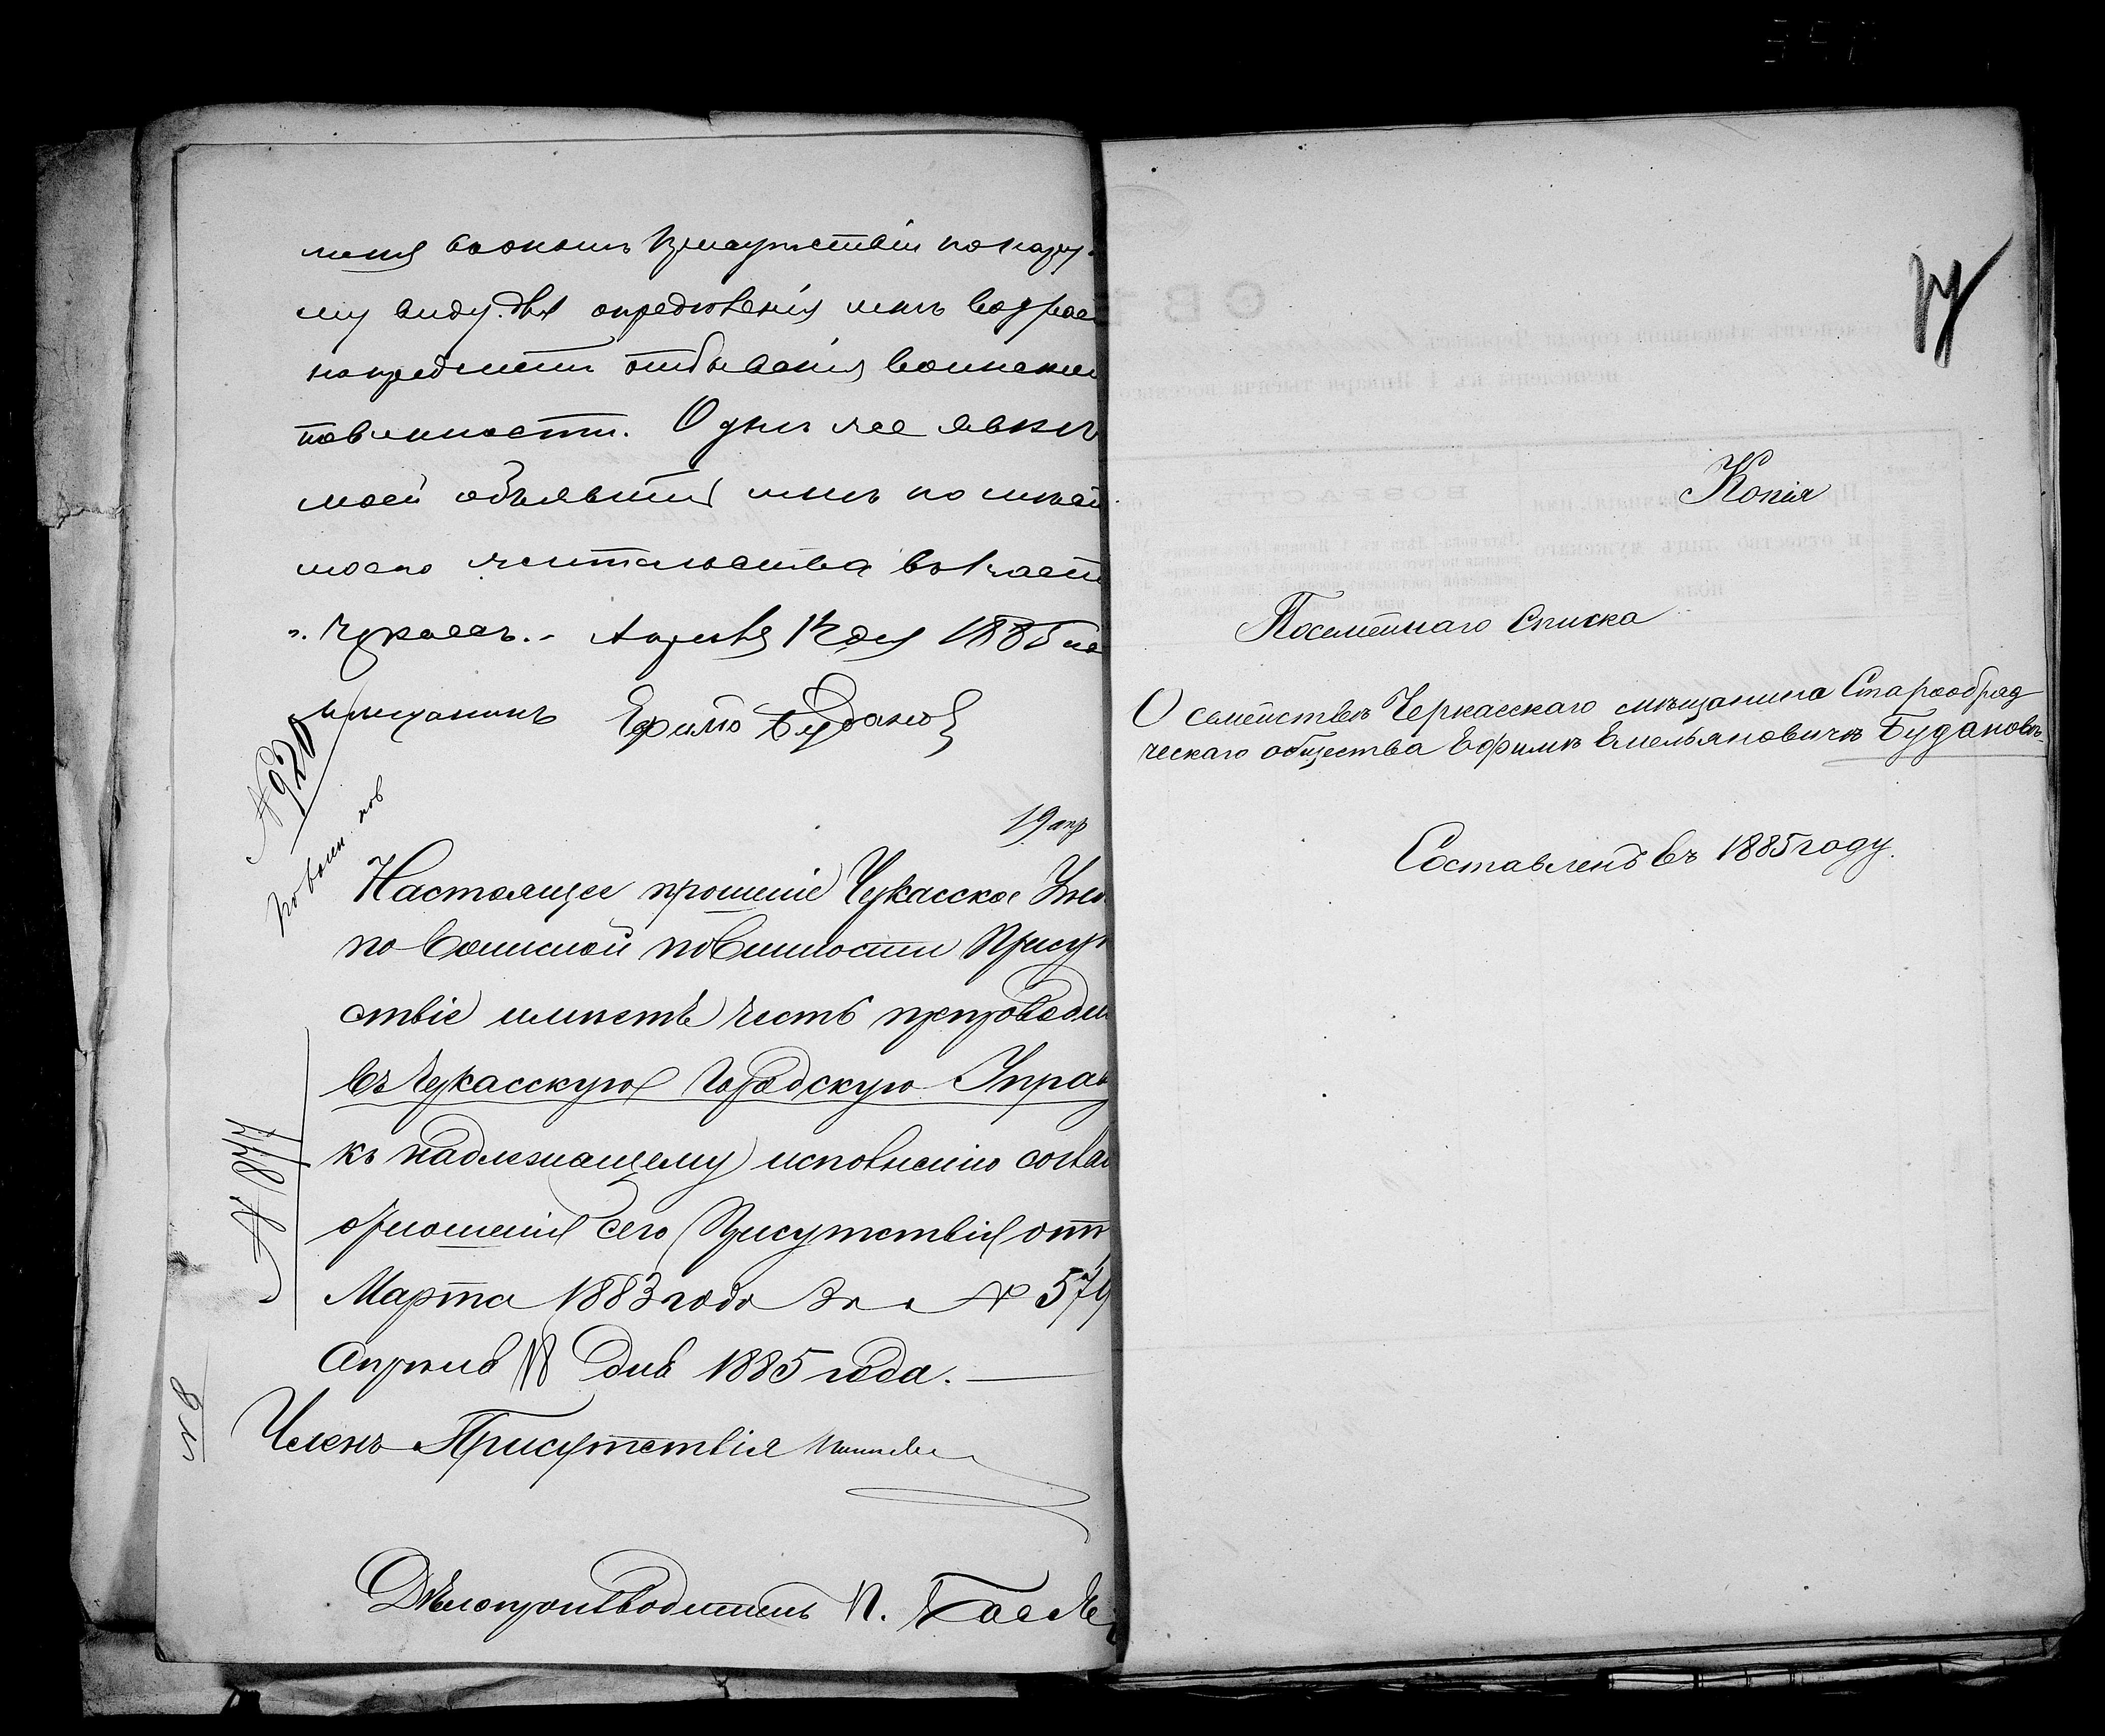 меня воономъ присутствіи по наруж
му виду для определенія мнѣ возрас
на предметъ отбыванія воинской
повинности. О днѣ же явки
моей объявить мнѣ по мѣсту
моего жительства въ части
г. Черкасъ. - Апреля 12 дня 1885 го
мещанинъ Ефимъ Будановъ
№ 920
по воин. пов
19 апр
Настоящее прошеніе Черкасское Уѣз
по воинской повинности Присут
ствіе имѣетъ честь препроводи
въ Черкасскую Городскую Управ
къ надлежащему исполненію соглас
отношенія сего Присутствія отъ
Марта 1883 года за № 579
Апрѣля 18 дня 1885 года.
Членъ Присутствія
Дѣлопроизводитель П.
Копія
Посемейнаго Списка
О семействѣ Черкасскаго мѣщанина Старообряд
ческаго общества Ефимѣ Емельяновичѣ Будановѣ
Составленъ въ 1885 году.